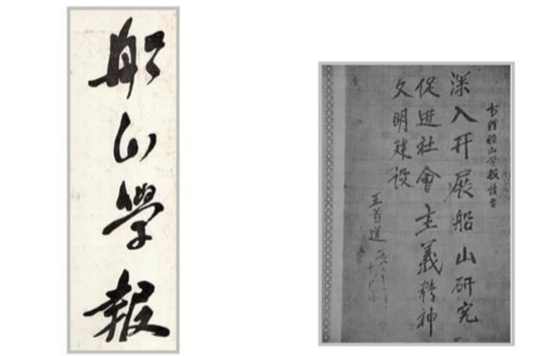 船山學報
书赠船山学报读者
深入开展船山研究
促进社會主義精神
文明建设
王首道